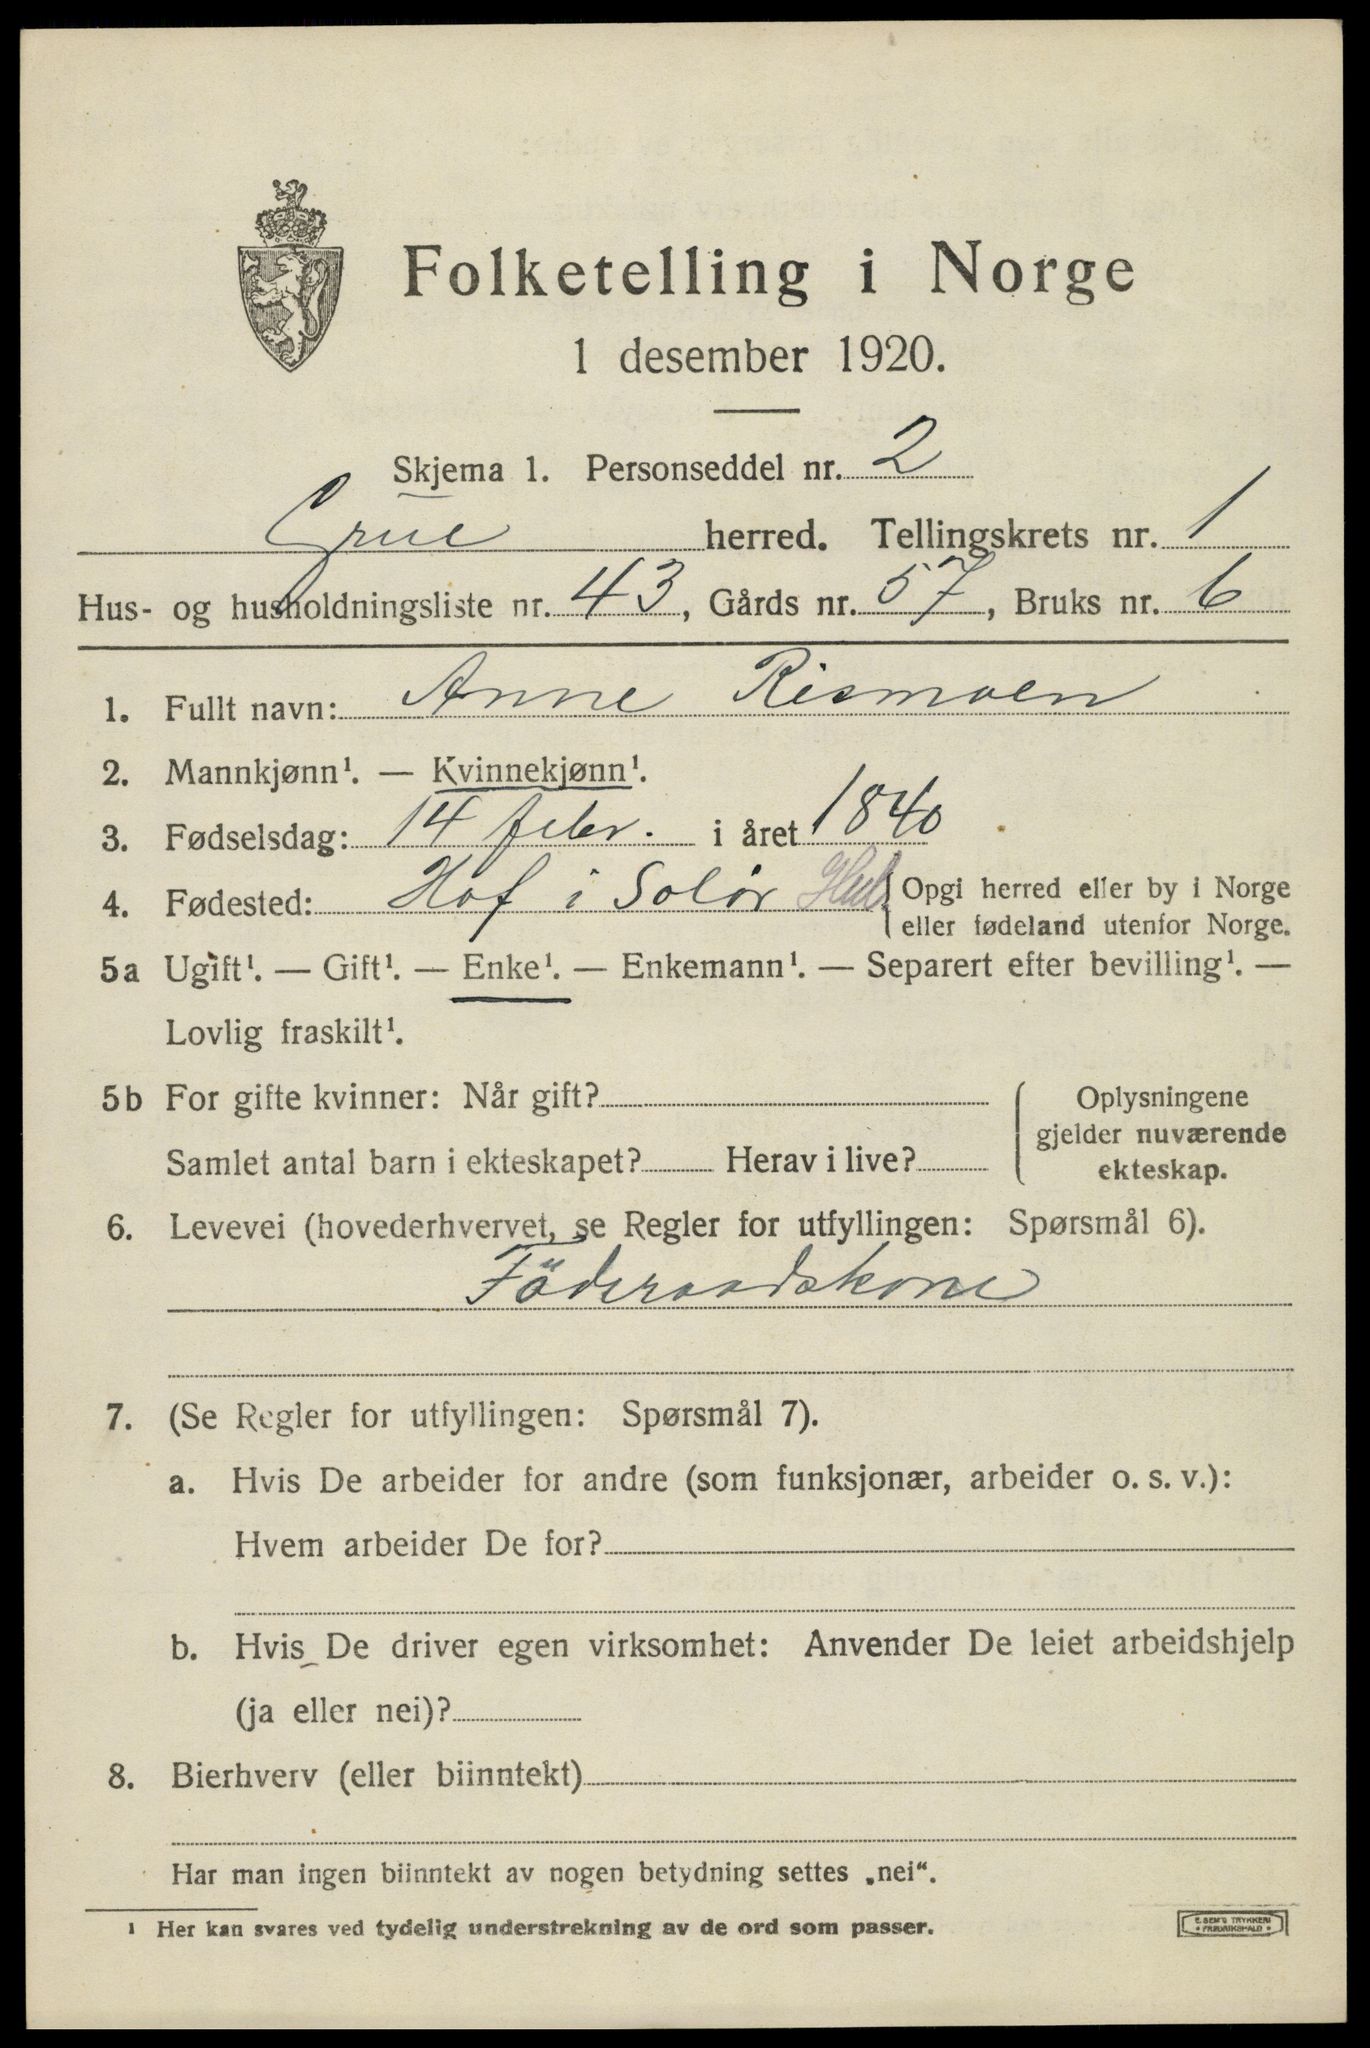 Folketelling i Norge
1 desember 1920.
Skjema 1. Personseddel nr. 2
Grue herred. Tellingskrets nr. 1
Hus- og husholdningsliste nr. 43, Gårds nr. 57, Bruks nr. 6
1. Fullt navn: Anne Rismoen
2. Mannkjønn¹. — Kvinnekjønn¹.
3. Fødselsdag: 14 febr. i året 1840
4. Fødested: Hof i Solør { Opgi herred eller by i Norge
eller fødeland utenfor Norge.
5a Ugift¹. — Gift¹. — Enke¹. — Enkemann¹. — Separert efter bevilling¹. —
Lovlig fraskilt¹.
5b For gifte kvinner: Når gift?
Samlet antal barn i ekteskapet? Herav i live?
Oplysningene
gjelder nuværende
ekteskap.
6. Levevei (hovederhvervet, se Regler for utfyllingen: Spørsmål 6).
Föderaadskone
7. (Se Regler for utfyllingen: Spørsmål 7).
a. Hvis De arbeider for andre (som funksjonær, arbeider o. s. v.):
Hvem arbeider De for?
b. Hvis De driver egen virksomhet: Anvender De leiet arbeidshjelp
(ja eller nei)?
8. Bierhverv (eller biinntekt)
Har man ingen biinntekt av nogen betydning settes „nei“.
¹ Her kan svares ved tydelig understrekning av de ord som passer.
E. SEM'S TRYKKERI
• FREDRIKSHALD •